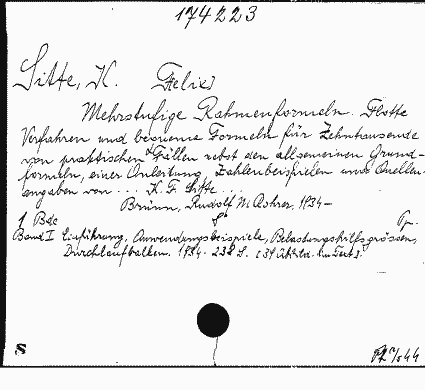 174223
Sitte, K. Felix
Mehrstufige Rahmenformeln. Flotte
Verfahren und bequeme Formeln für Zehntausende
von praktischen Fällen nebst den allgemeinen Grund-
formeln, einer Anleitung, Zahlenbeispielen und Quellen-
angaben von ... K. F. Sitte ...
Brünn, Rudolf M. Rohrer, 1934-
1 Bde 8°
Band I Einführung, Anwendungsbeispiele, Belastungshilfsgrössen,
Durchlaufbalken. 1934. 232 S.
S